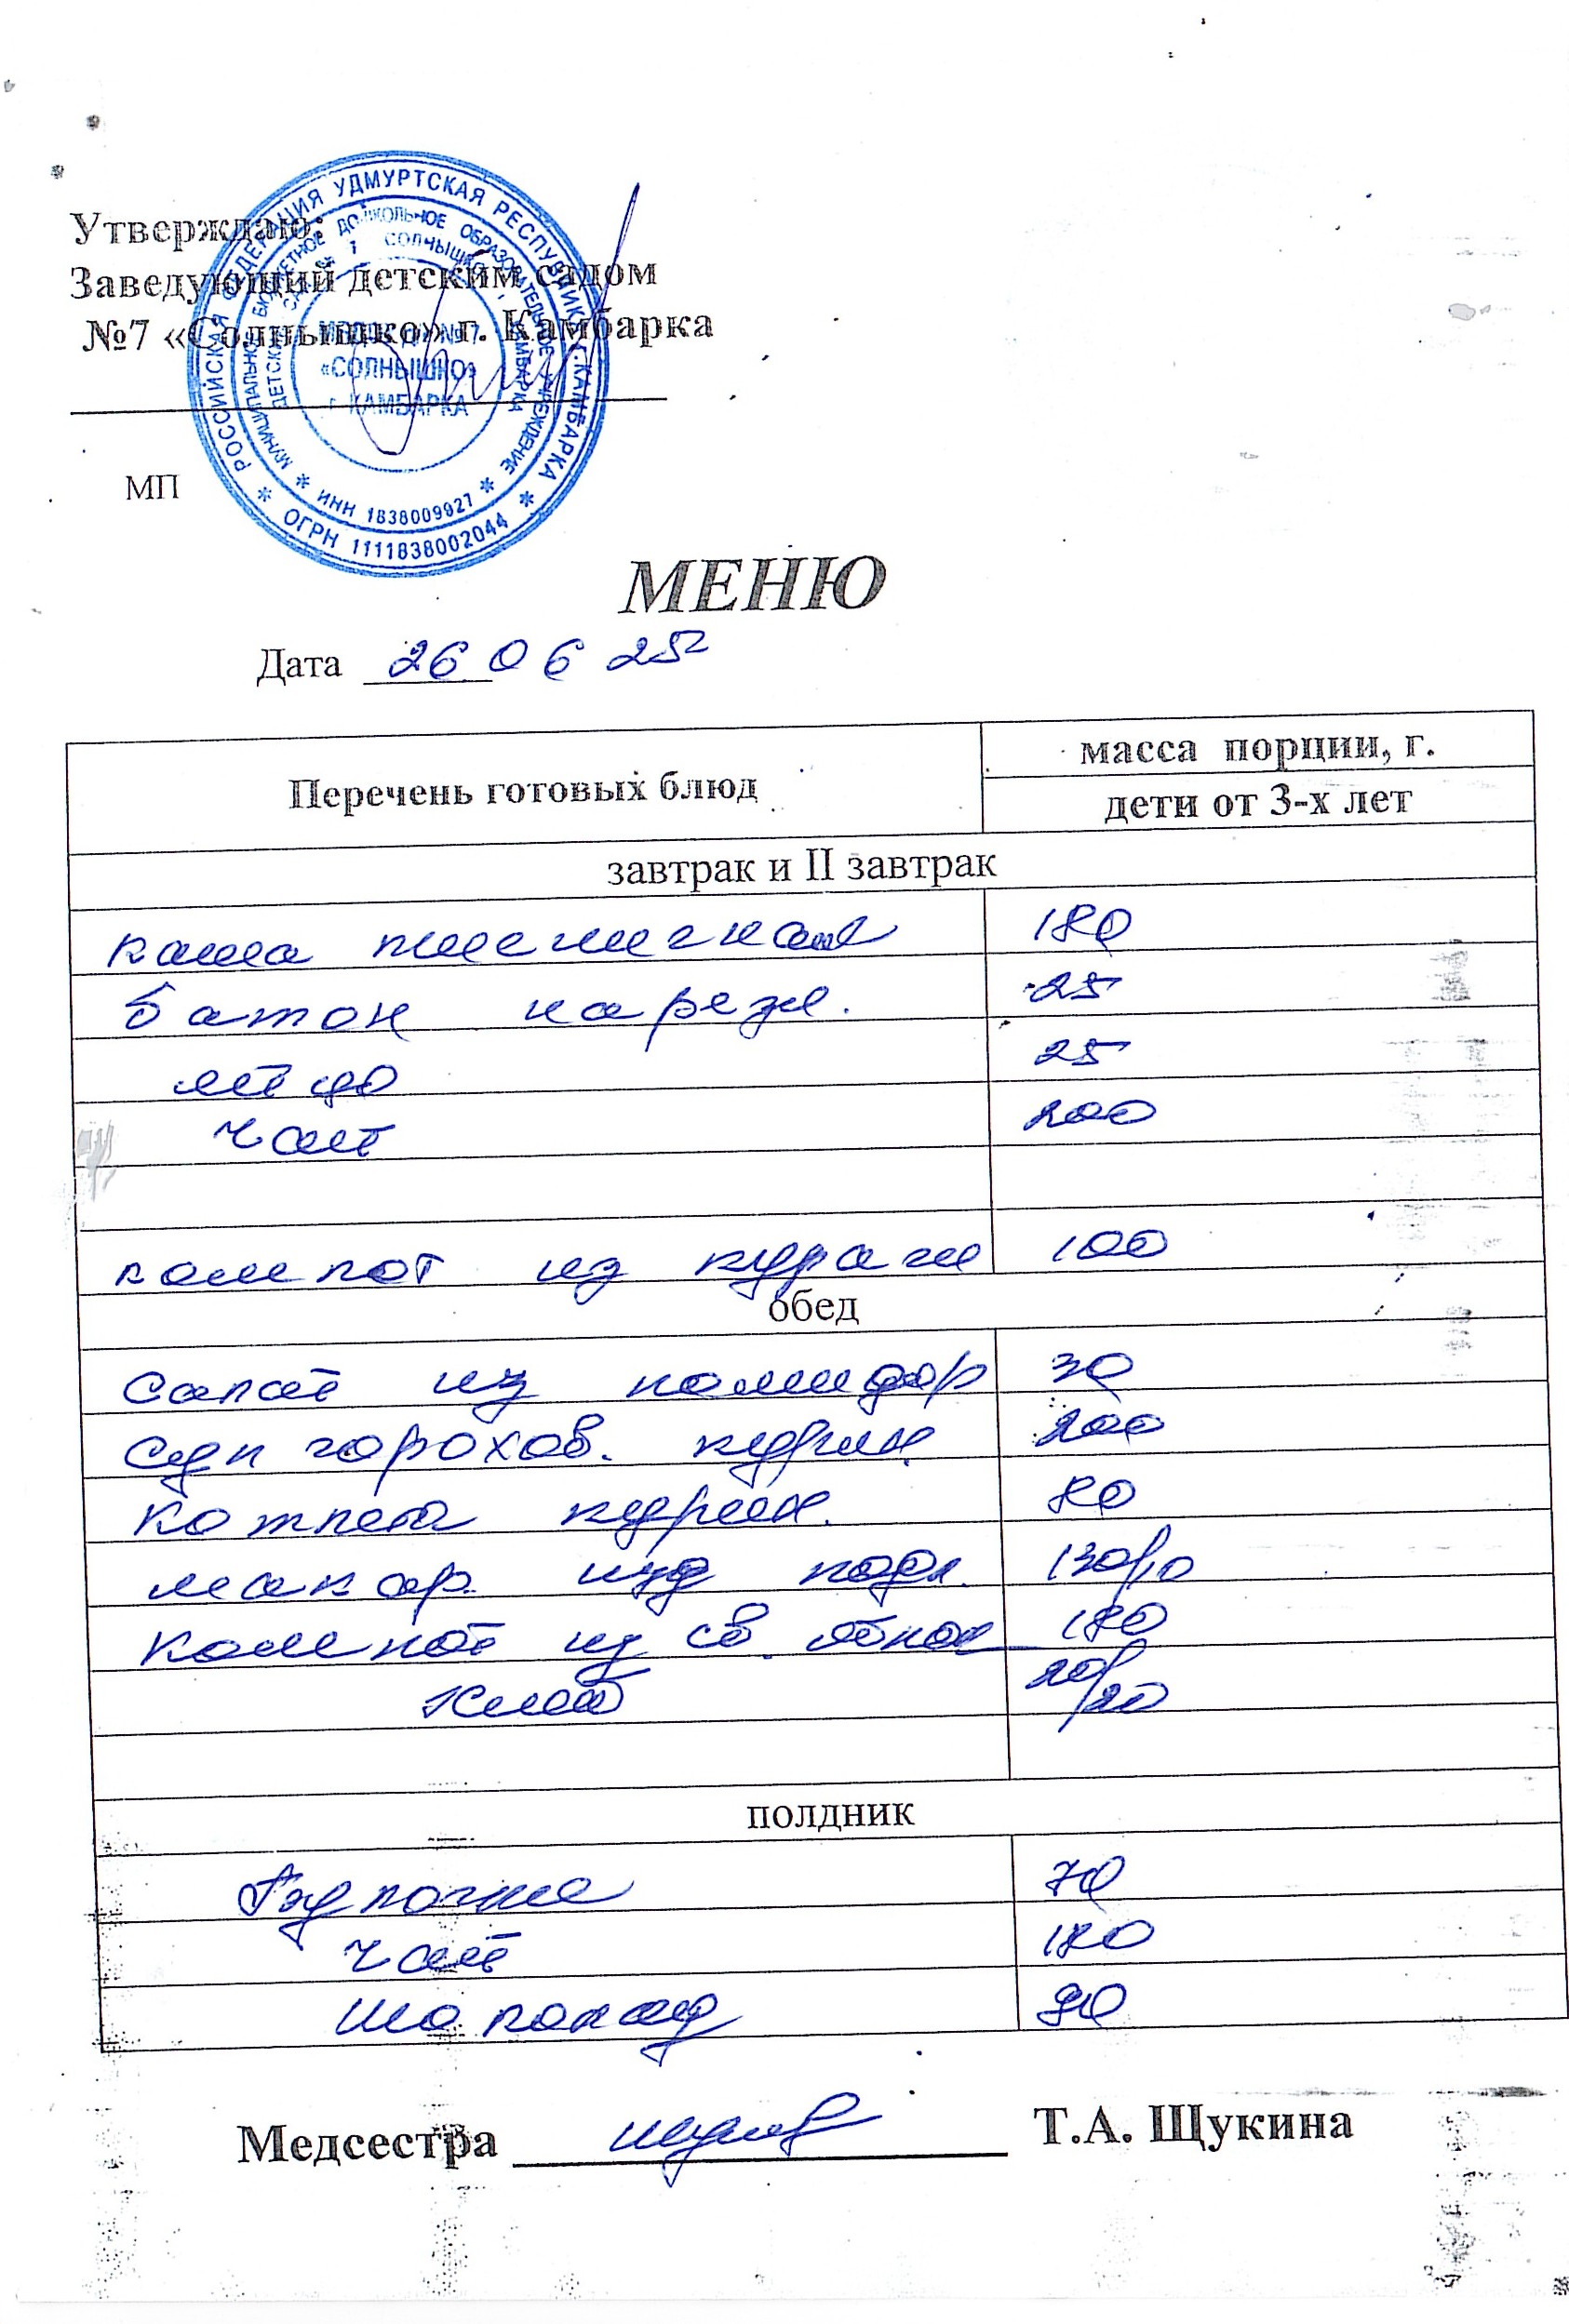 Утверждаю:
Заведующий детским садом
№7 «Солнышко» г. Камбарка
РОССИЙСКАЯ ФЕДЕРАЦИЯ УДМУРТСКАЯ РЕСПУБЛИКА г. КАМБАРКА
ОГРН 1111838002044
МУНИЦИПАЛЬНОЕ БЮДЖЕТНОЕ ДОШКОЛЬНОЕ ОБРАЗОВАТЕЛЬНОЕ УЧРЕЖДЕНИЕ
ИНН 1838009927
№ 7
«СОЛНЫШКО»
г. КАМБАРКА
МП
МЕНЮ
Дата 26 06 25
Перечень готовых блюд масса порции, г.
дети от 3-х лет
завтрак и II завтрак
каша пшеничная 180
батон нарезн. 25
яйцо 25
чай 200
компот из кураги 100
обед
салат из помидор 30
суп горохов. курин. 200
котлета курин. 80
макар. изд подл. 130/10
компот из св. яблок 180
хлеб 20/20
полдник
Булочка 70
чай 180
шоколад 90
Медсестра Т.А. Щукина